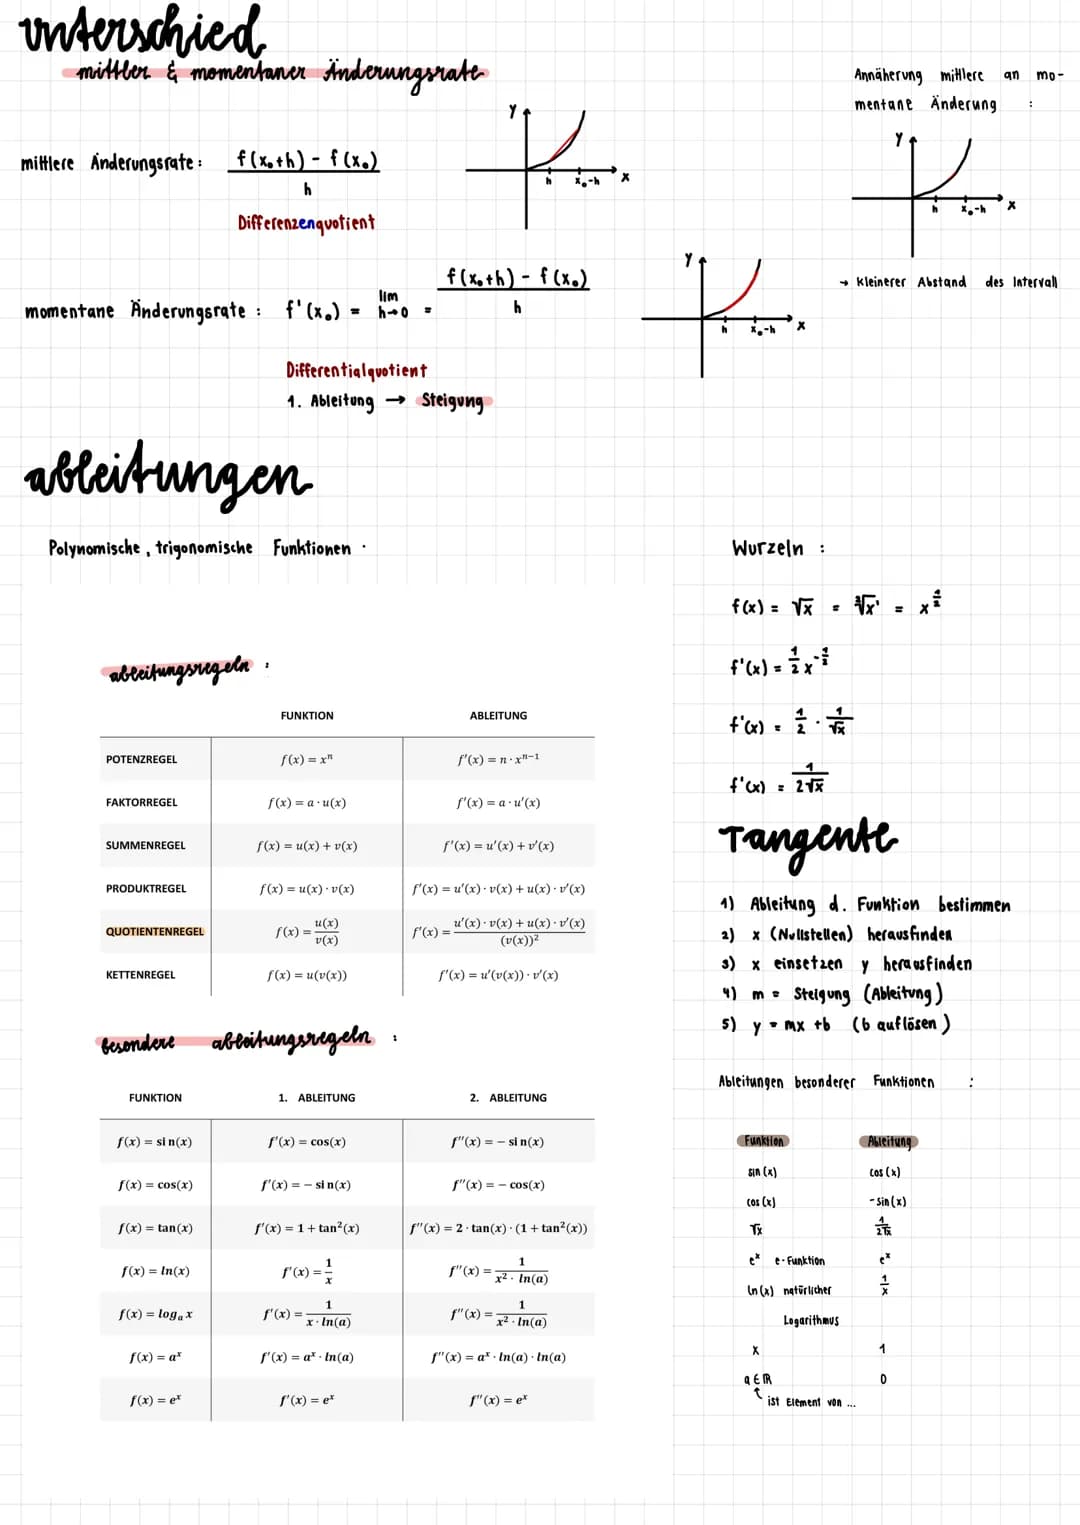 unterschied
mittler & momentaner Änderungsrate
Annäherung mittlere an mo-
mentane Änderung :
mittlere Änderungsrate : f(x₀+h) - f(x₀)
h
Differenzenquotient
y
h x₀-h x
y
h x₀-h x
→ kleinerer Abstand des Intervall
momentane Änderungsrate : f'(x₀) = lim h→0 = f(x₀+h) - f(x₀)
h
y
h x₀-h x
Differentialquotient
1. Ableitung → Steigung
ableitungen
Polynomische, trigonomische Funktionen .
ableitungsregeln :
FUNKTION ABLEITUNG
POTENZREGEL f(x) = xⁿ f'(x) = n · xⁿ⁻¹
FAKTORREGEL f(x) = a · u(x) f'(x) = a · u'(x)
SUMMENREGEL f(x) = u(x) + v(x) f'(x) = u'(x) + v'(x)
PRODUKTREGEL f(x) = u(x) · v(x) f'(x) = u'(x) · v(x) + u(x) · v'(x)
QUOTIENTENREGEL f(x) = u(x)/v(x) f'(x) = u'(x) · v(x) + u(x) · v'(x)/(v(x))²
KETTENREGEL f(x) = u(v(x)) f'(x) = u'(v(x)) · v'(x)
besondere ableitungsregeln :
FUNKTION 1. ABLEITUNG 2. ABLEITUNG
f(x) = sin(x) f'(x) = cos(x) f''(x) = − sin(x)
f(x) = cos(x) f'(x) = − sin(x) f''(x) = − cos(x)
f(x) = tan(x) f'(x) = 1 + tan²(x) f''(x) = 2 · tan(x) · (1 + tan²(x))
f(x) = ln(x) f'(x) = 1/x f''(x) = 1/x² · ln(a)
f(x) = logₐ x f'(x) = 1/x · ln(a) f''(x) = 1/x² · ln(a)
f(x) = aˣ f'(x) = aˣ · ln(a) f''(x) = aˣ · ln(a) · ln(a)
f(x) = eˣ f'(x) = eˣ f''(x) = eˣ
Wurzeln :
f(x) = √x = ²√x¹ = x^1/2
f'(x) = 1/2 x^-1/2
f'(x) = 1/2 · 1/√x
f'(x) = 1/2√x
Tangente
1) Ableitung d. Funktion bestimmen
2) x (Nullstellen) herausfinden
3) x einsetzen y herausfinden
4) m = Steigung (Ableitung)
5) y = mx + b (b auflösen)
Ableitungen besonderer Funktionen :
Funktion Ableitung
sin (x) cos (x)
cos (x) - sin (x)
√x 1/2√x
eˣ e-Funktion eˣ
ln (x) natürlicher 1/x
Logarithmus
x 1
a ∈ ℝ 0
↑ ist Element von ...